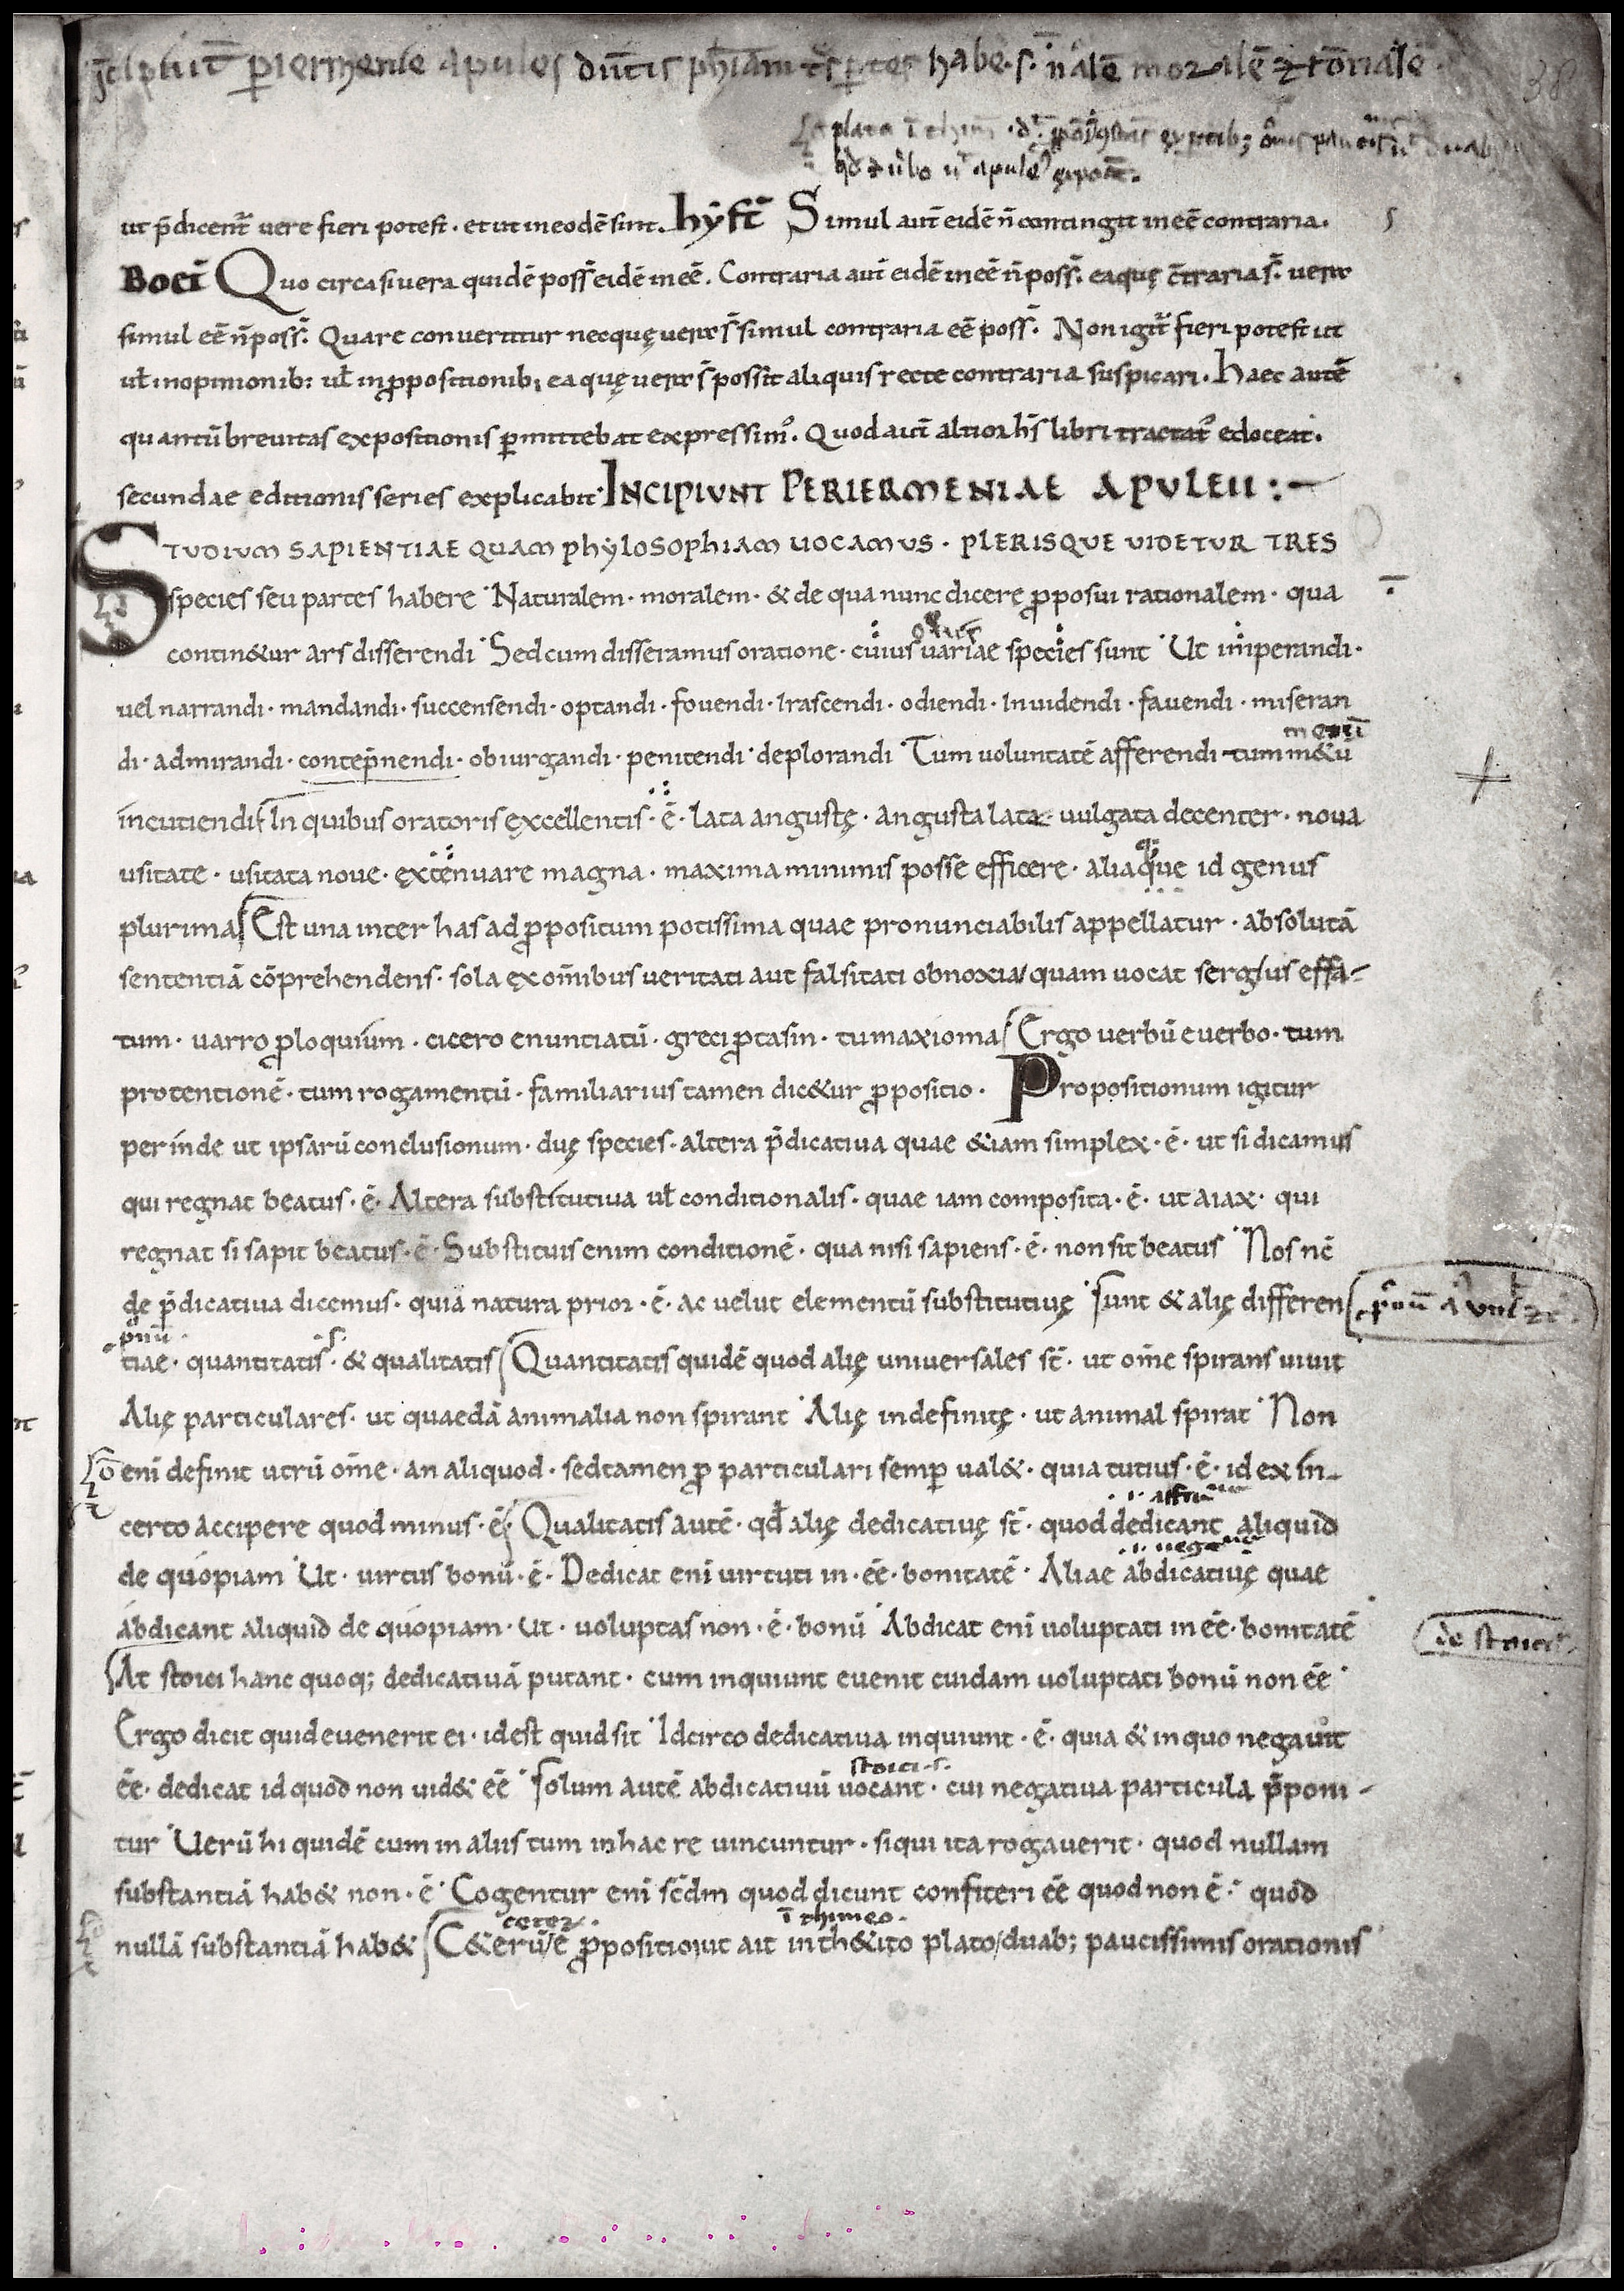 Incipiunt periermenie apulei dicentis ph̄iam trs̄ partes habe .s. nãlē moralē & rõnalē.
38
plato
apulei᷒
ut p̄dicent᷑ uere fieri potest. et ut in eodē sint. hyst̄ Simul aut̄ eidē n̄ contingit in eē contraria.
BOET̄ Quo circa si uera quidē poss̄ eidē in eē. Contraria aut̄ eidē in eē n̄ poss̄. ea quę c̄traria s̄. uera
simul eē n̄ poss̄. Quare conuertitur nec quę uera s̄ simul contraria eē poss̄. Non igit᷑ fieri potest ut
ut̄ in opinionib; ut̄ in ꝓpositionib; ea quę uera s̄ possit aliquis recte contraria suspicari. Haec autē
quantū breuitas expositionis ꝑmittebat expressim᷒. Quod aut̄ altior hi᷒ libri tractat᷒ edoceat.
secundae editionis series explicabit INCIPIUNT PERIERMENIAE APULEII :⁓
STUDIUM SAPIENTIAE QUAM PHYLOSOPHIAM UOCAMUS · PLERISQUE UIDETUR TRES
species seu partes habere · Naturalem · moralem · & de qua nunc dicere ꝓposui rationalem · qua
contin&ur ars disserendi · Sed cum disseramus oratione · cuius uariae species sunt · Ut imperandi ·
uel narrandi · mandandi · succensendi · optandi · fouendi · Irascendi · odiendi · Inuidendi · fauendi · miseran
metū
di · admirandi · contep̄nendi · obiurgandi · penitendi · deplorandi · Tum uoluntatē afferendi tum m&ū
incutiendi In quibus oratoris excellentis · ē · lata angustę · angusta lata uulgata decenter · noua
usitate · usitata noue · extenuare magna · maxima minimis posse efficere · aliaque id genus
plurima Est una inter has ad ꝓpositum potissima quae pronunciabilis appellatur · absolutā
sententiā cōprehendens · sola ex om̄ibus ueritati aut falsitati obnoxia/ quam uocat sergius effa-
tum · uarro ꝓloquium · cicero enuntiatū · greci ꝓtasin · tum axioma Ergo uerbū e uerbo · tum
protentionē · tum rogamentū · familiarius tamen dic&ur ꝓpositio · Propositionum igitur
perinde ut ipsarū conclusionum · duę species · altera p̄dicatiua quae &iam simplex · ē · ut si dicamus
qui regnat beatus · ē · Altera substitutiua ut̄ conditionalis · quae iam composita · ē · ut aiax · qui
regnat si sapit beatus · ē · Substituis enim conditionē · qua nisi sapiens · ē · non sit beatus · Nos nc̄
de p̄dicatiua dicemus · quia natura prior · ē · ac uelut elementū substitutiuę · sunt & alię differen
tiae · quantitatis · & qualitatis Quantitatis quidē quod alię uniuersales st̄ · ut om̄e spirans uiuit
Alię particulares · ut quaedā animalia non spirant · Alię indefinitę · ut animal spirat · Non
enī definit utrū om̄e · an aliquod · sed tamen ꝓ particulari semꝑ ual& · quia tutius · ē · id ex in-
certo accipere quod minus · ē Qualitatis autē · qđ alię dedicatiuę st̄ · quod dedicant aliquid
de quopiam · Ut · uirtus bonū · ē · Dedicat enī uirtuti in · eē · bonitatē · Aliae abdicatiuę quae
abdicant aliquid de quopiam · Ut · uoluptas non · ē · bonū · Abdicat enī uoluptati in eē · bonitatē
de stoicis
At stoici hanc quoq; dedicatiuā putant · cum inquiunt euenit cuidam uoluptati bonū non eē ·
Ergo dicit quid euenerit ei · id est quid sit · Idcirco dedicatiua inquiunt · ē · quia & in quo negauit
stoici .s.
eē · dedicat id quod non uid& eē · Solum autē abdicatiuū uocant · cui negatiua particula p̄poni-
tur · Uerū hi quidē cum in aliis tum in hac re uincuntur · siqui ita rogauerit · quod nullam
substantiā hab& non · ē · Cogentur enī scđm quod dicunt confiteri eē quod non ē · quod
ī thimeo ·
nullā substantiā hab& C&erū/ē ꝓpositio/ut ait in th&ito plato/duab; paucissimis orationis